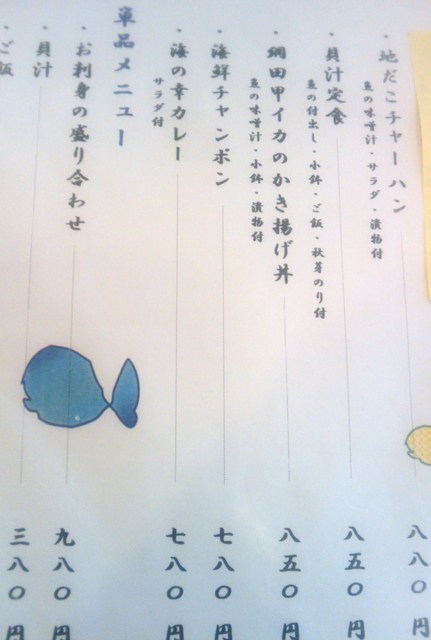 ・地だこチャーハン
魚の味噌汁・サラダ・漬物付
八八〇円
・貝汁定食
魚の付出し・小鉢・ご飯・秋芽のり付
八五〇円
・網田甲イカのかき揚げ丼
魚の味噌汁・小鉢・漬物付
八五〇円
・海鮮チャンポン
七八〇円
・海の幸カレー
サラダ付
七八〇円
単品メニュー
・お刺身の盛り合わせ
九八〇円
・貝汁
三八〇円
・ご飯